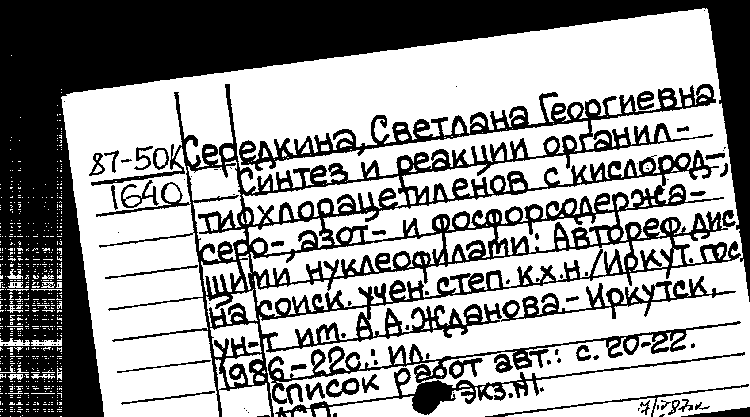 87-50К
1640
Середкина, Светлана Георгиевна.
Синтез и реакции органил-
тиохлорацетиленов с кислород-,
серо-, азот- и фосфорсодержа-
щими нуклеофилами: Автореф. дис.
на соиск. учен. степ. к.х.н./Иркут. гос.
ун-т им. А.А.Жданова.- Иркутск,
1986.-22с.: ил.
Список работ авт.: с. 20-22.
ДСП. Экз.№1.